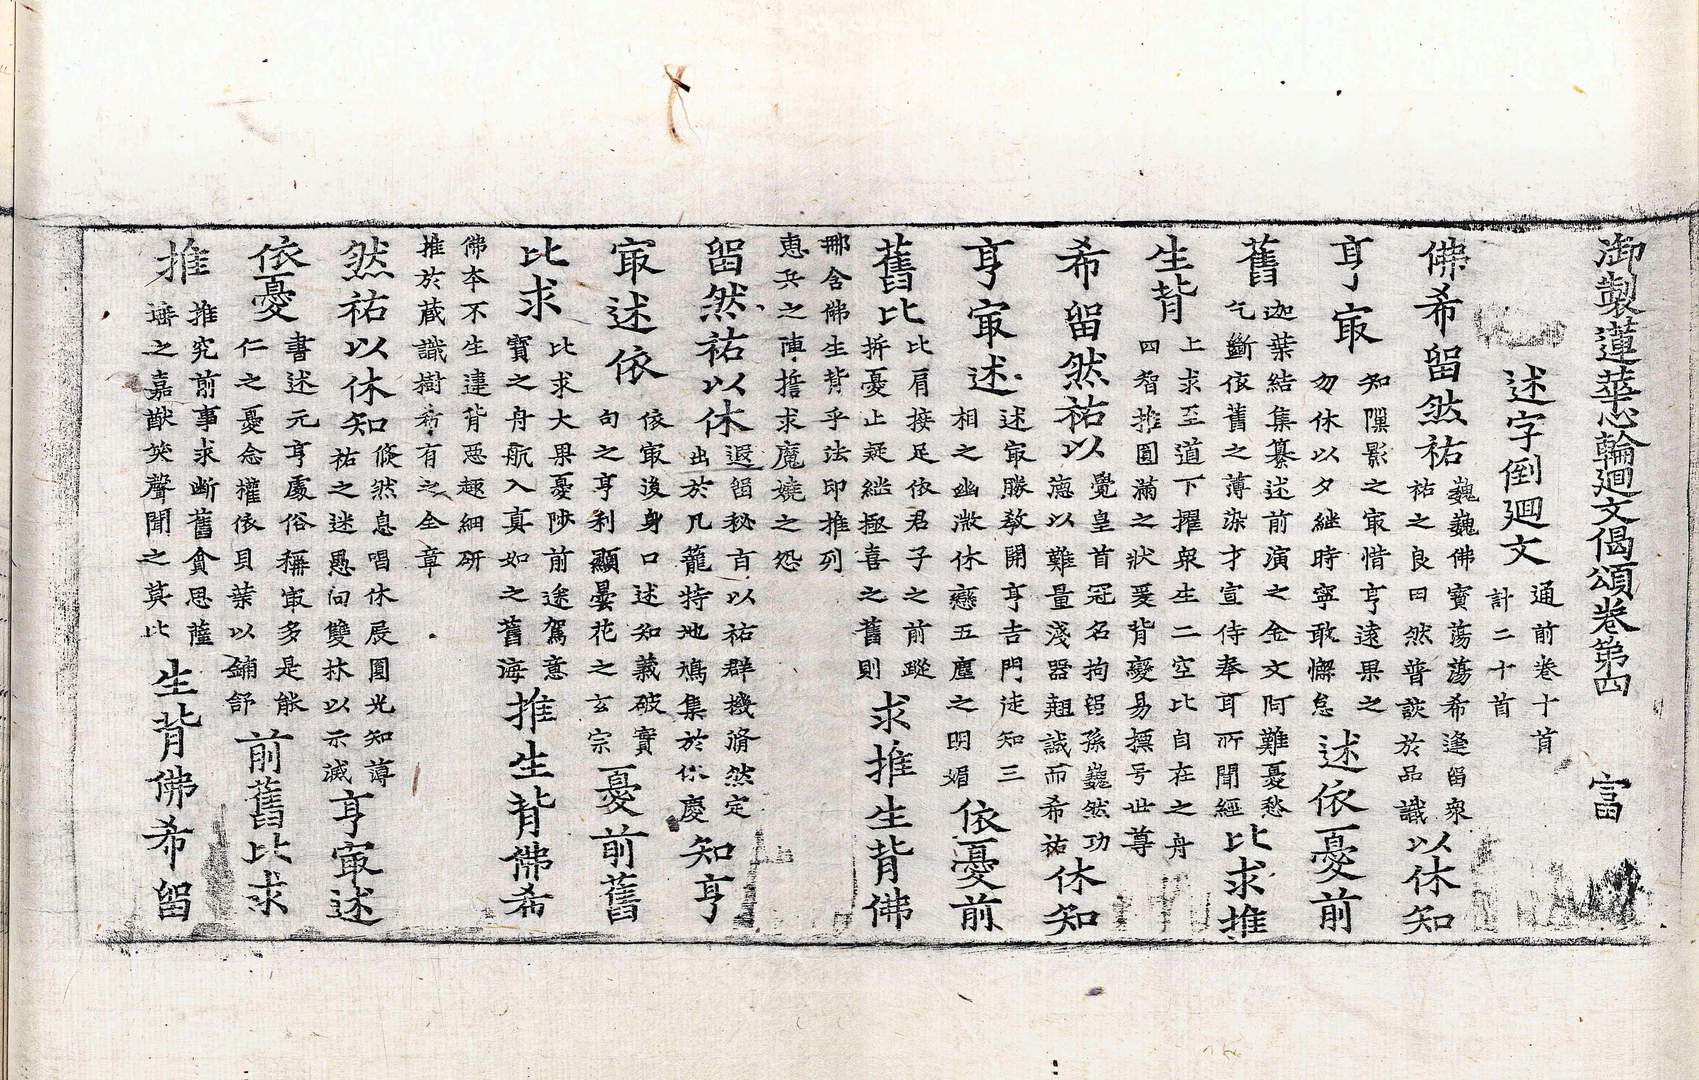 御製蓮華心輪廻文偈頌卷第四 富
述字倒廻文
通前卷十首
計二十首
佛希留然祐
巍巍佛寶蕩蕩希逢留衆
祐之良曰然普談於品識
以休知
亨㝡
知隟影之㝡惜亨遠果之
勿休以夕継時寧敢懈怠
述依憂前
舊
迦葉結集纂述前演之金文阿難憂愁
乞斷依舊之薄染才宣侍奉耳所聞經
比求推
生背
上求至道下擢衆生二空比自在之舟
四智推圓滿之狀爰背變易摽号世尊
希留然祐以
覺皇首冠名拘留孫巍然功
德以難量淺器翹誠而希祐
休知
亨㝡述
述㝡勝教開亨吉門徒知三
相之幽㣲休戀五塵之明媚
依憂前
舊比
比肩接足依君子之前蹤
拆憂止疑継極喜之舊則
求推生背佛
那含佛生背乎法印推列
惠兵之陣擔求魔嬈之怨
留然祐以休
遐留秘百以祐群機脩然定
出於凡籠特地鳩集於休慶
知亨
㝡述依
依㝡後身口述知義破實
句之亨利顯曇花之玄宗
憂前舊
比求
比求大果憂陟前途駕意
寶之舟航入真如之舊海
推生背佛希
佛本不生違背惡趣細研
推於蔵識樹希有之全章
然祐以休知
倐然息唱休辰圓光知薄
祐之迷愚向雙林以示滅
亨㝡述
依憂
書述元亨處俗稱㝡多是能
仁之憂念擢依貝葉以鋪舒
前舊比求
推
推究前事求斷舊貪思薩
埵之嘉猷笑聲聞之莫比
生背佛希留